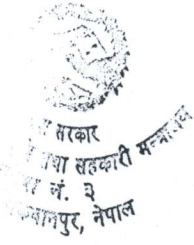 सरकार
तथा सहकारी मन्त्रालय
नं. ३
नेपाल